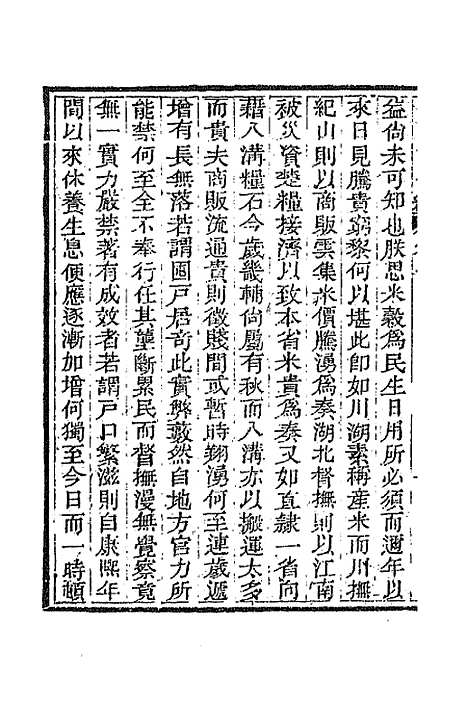 益尙未可知也朕思米穀爲民生日用所必須而邇年以
來日見騰貴窮黎何以堪此卽如川湖素稱產米而川撫
紀山則以商販雲集米價騰湧爲奏湖北督撫則以江南
被災資楚糧接濟以致本省米貴爲奏又如直隸一省向
藉八溝糧石今歲畿輔尙屬有秋而八溝亦以搬運太多
而貴夫商販流通貴則徵賤間或暫時翔湧何至連歲遞
增有長無落若謂囤戸居奇此實弊藪然自地方官力所
能禁何至全不奉行任其壟斷累民而督撫漫無覺察竟
無一實力嚴禁著有成效者若謂戸口繁滋則自康熙年
間以來休養生息便應逐漸加增何獨至今日而一時頓